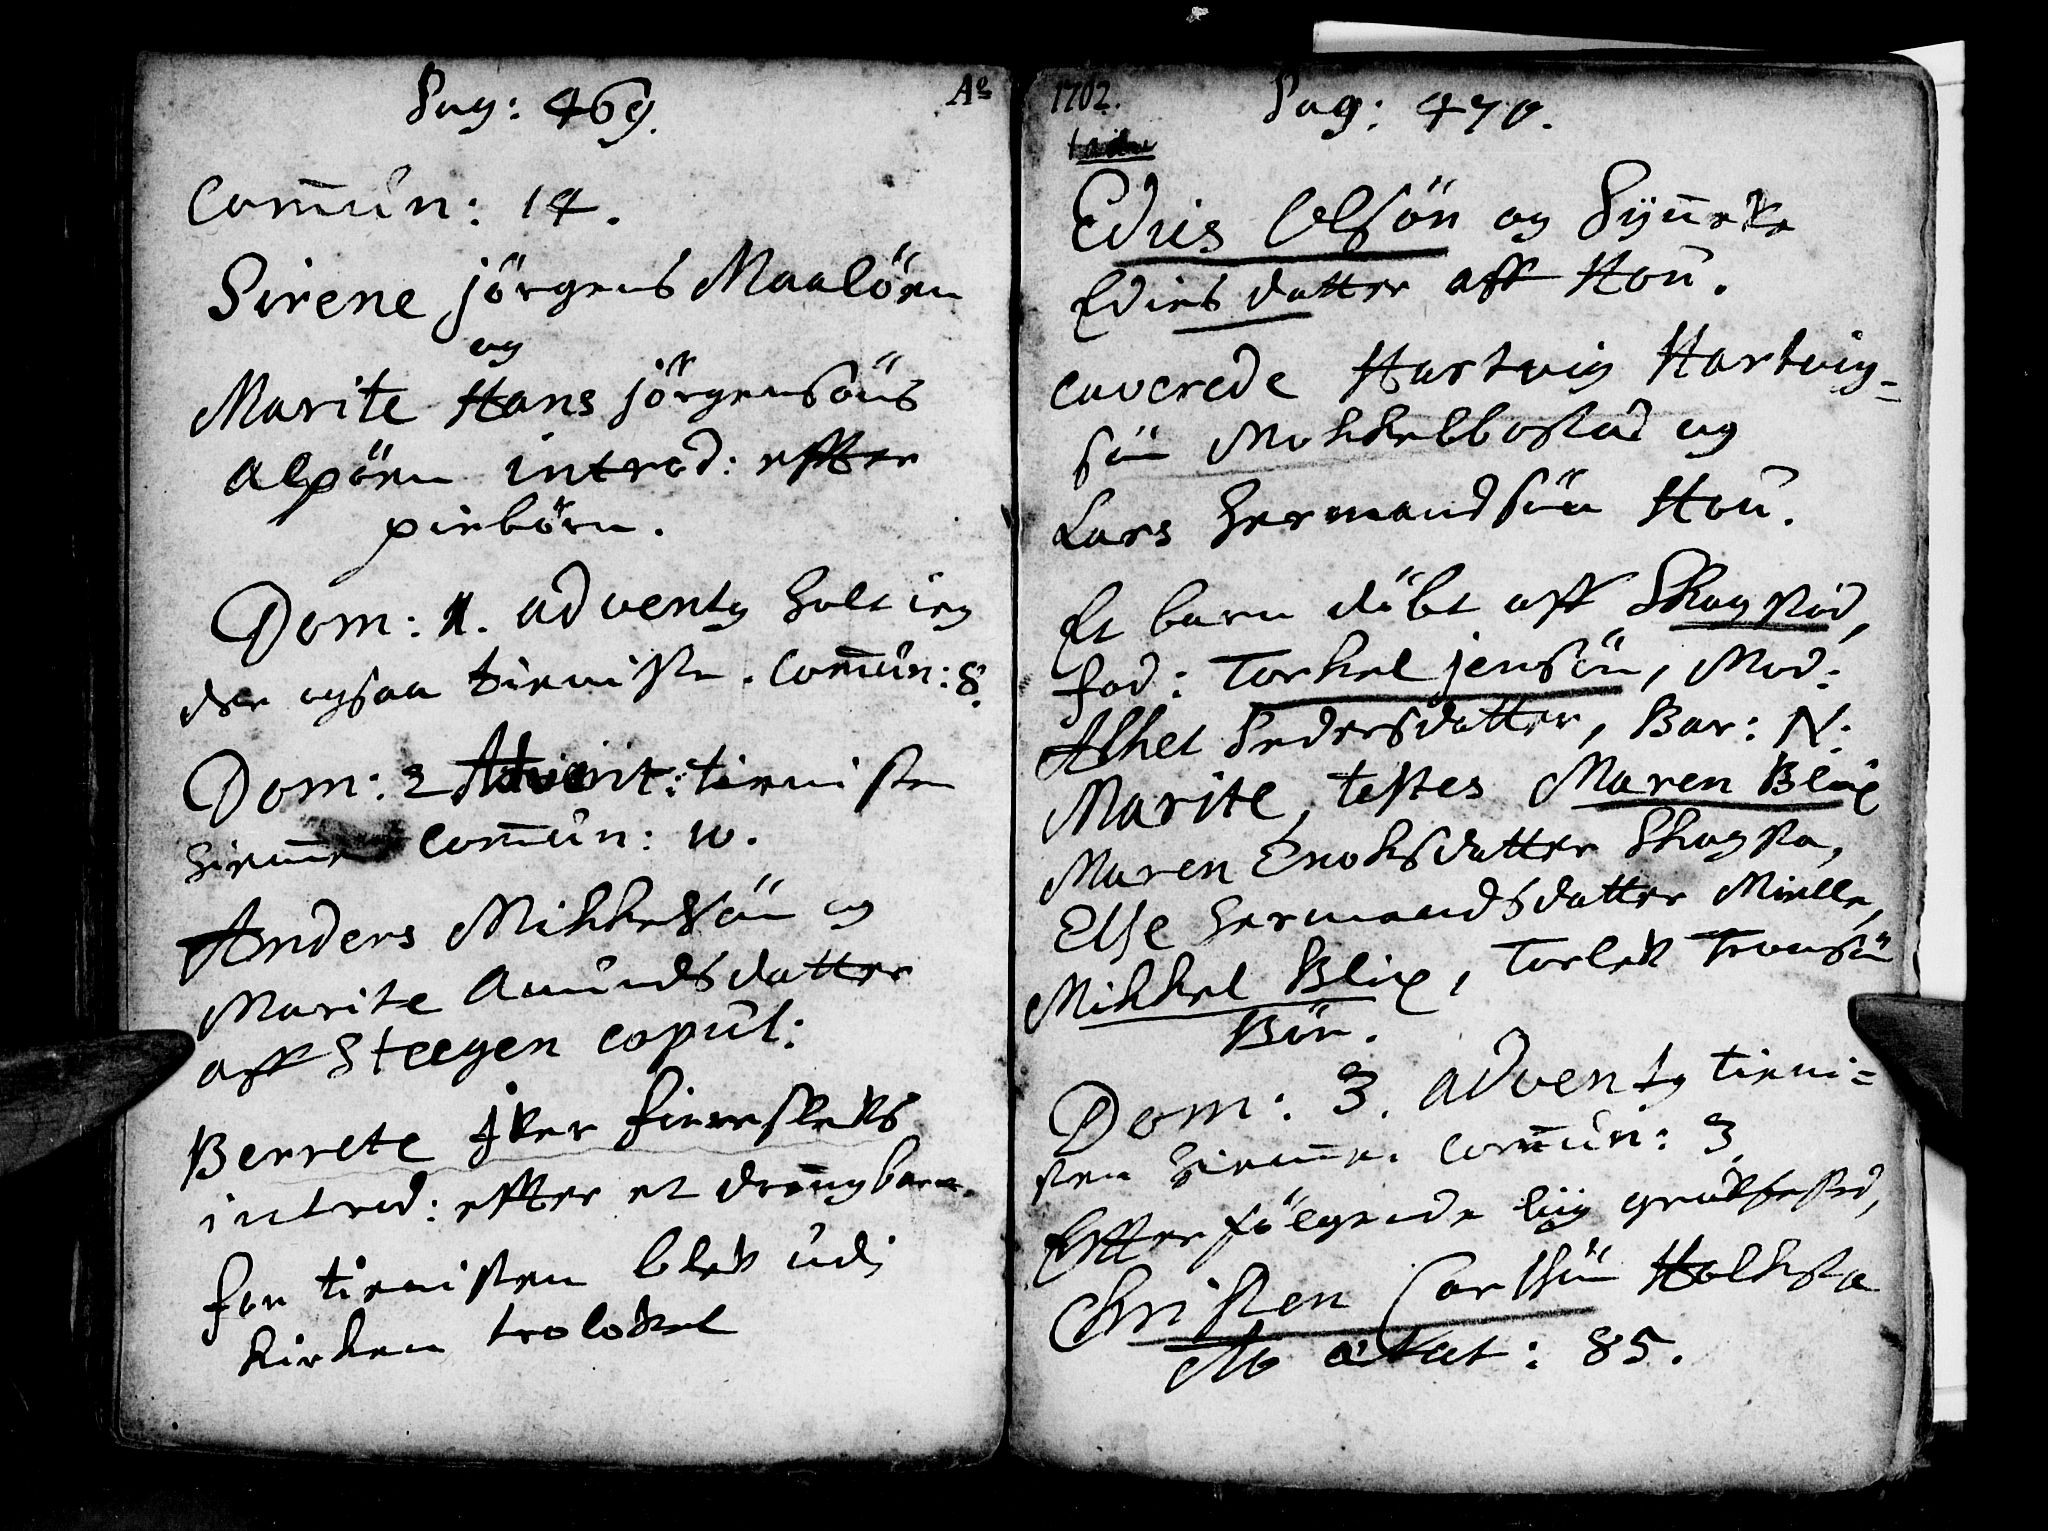 Pag: 469.
Aº
Com̅un: 14.
Sirene jörgens Maalöen
og
Marite Hans jörgensöns
Alpöen introd: effter
piebörn.
Dom: 1. adventg holt ieg
der ogsaa tieniste. Com̅un: 8.
Dom: 2 Advent: tienisten
hiem̅e Com̅un: 10.
Anders Mikkelsön og
Marite Amundsdatter
aff Steegen copul:
Berrete Iver fiereskeks
introd: effter et dreng barn.
for tienisten blev udi
kirken trolovet
1702.
Pag: 470.
Edvis Olsön og Syn̅eve
Edvisdatter aff Hou.
caverede Hartvig Hartvig-
sön Mokkelbostad og
Lars Hermandsön Hou.
Et barn döbt aff Skagstad,
fad: Torkel jensön, Mod:
Alhet Pedersdatter, Bar: N:
Marite, testes Maren Blix
Maren Enoksdatter Skagsta,
Else Hermandsdatter Mielle,
Mikkel Blix, Torlek Tronsön
Bön.
Dom: 3. adventg tieni=
sten hiem̅e. Com̅un: 3
Effterfölgende liig grafested,
Christen Carlsön Holksta
Mo ætat: 85.